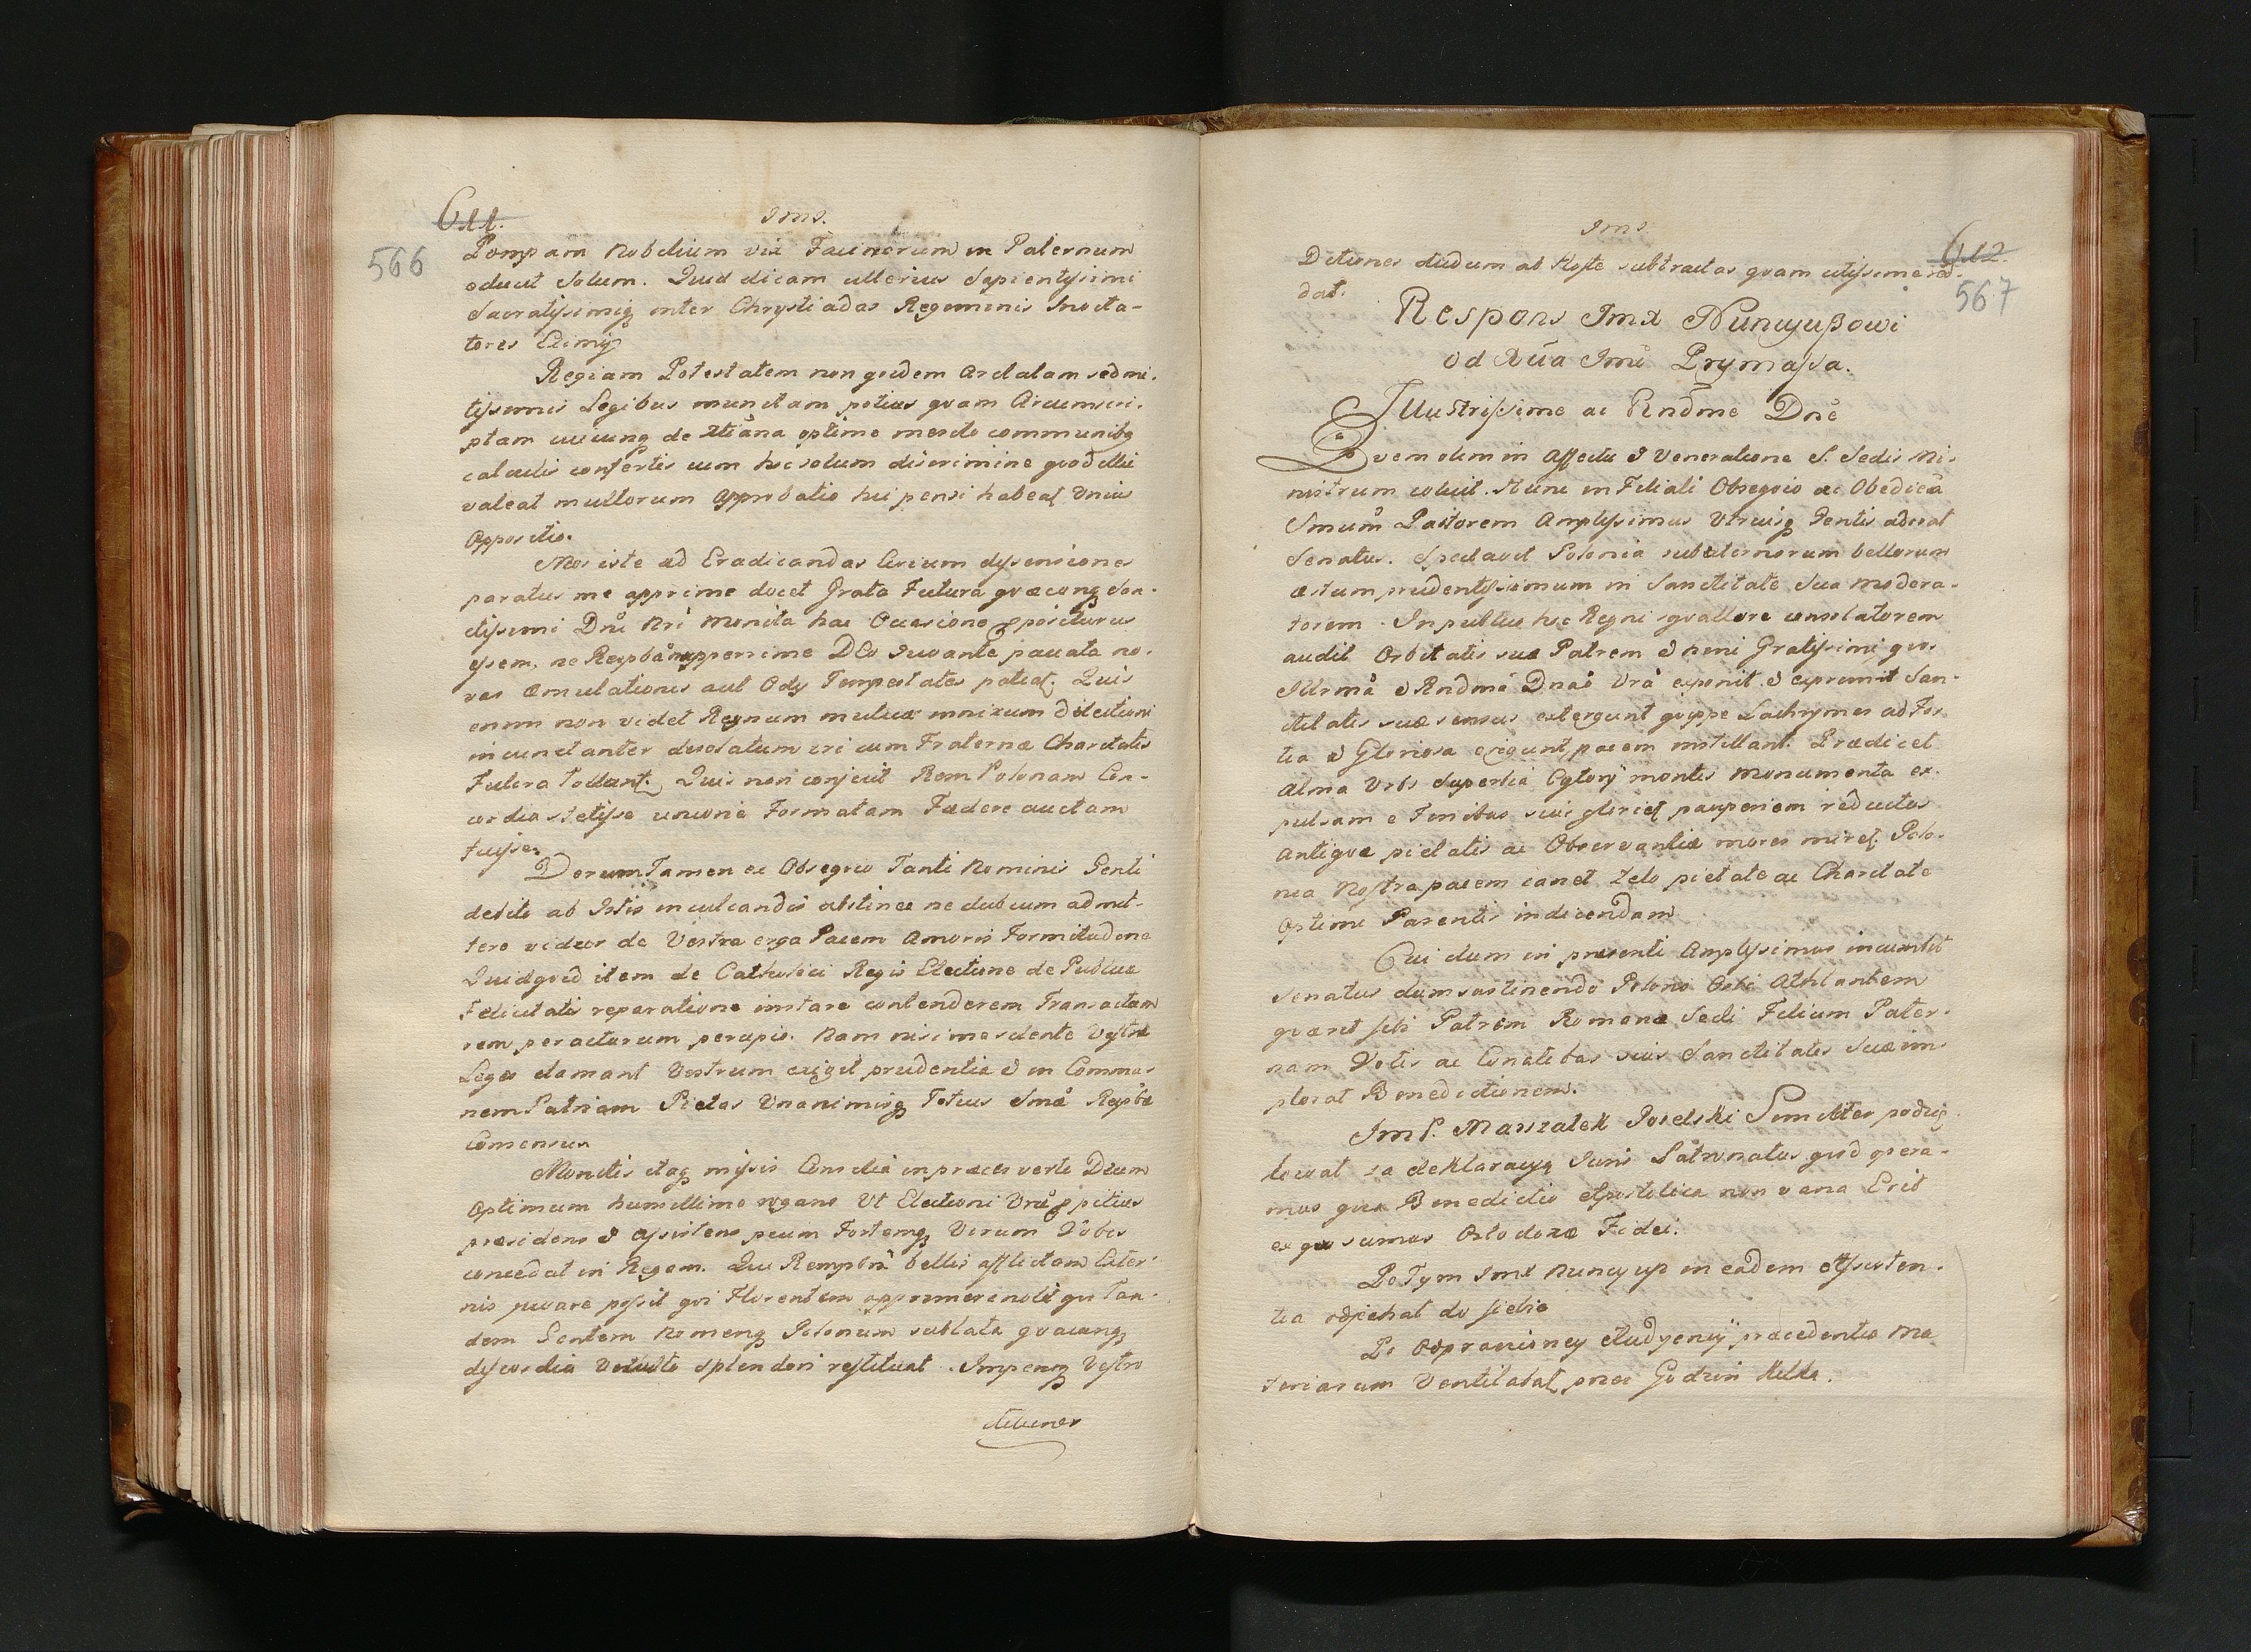 611.
Jms.
566
Pompam Nobilium via Facinorum in Paternum
educit solum. Quid dicam ulterius Sapientissimi
Sacratissimiq inter Chrystiadas Regiminis
tores Eximij
Regiam Potestatem non qvidem Arctatam sed mi-
tissimis Legibus munitam potius qvam Circumscri-
ptam cuicunq de Xtiana optime merito communibq
calculis confertis cum hoc solum discrimine qvod illic
valeat multorum Approbatio hic pensi habeat Vnius
Oppositio.
Mos iste ad Eradicandas Civium dyssensiones
paratus me apprime docet Grata Futura qvæcunq San-
ctissimi Dni Nri Monita hac Occasione propositurus
essem, ne Respba DEo Juvante paccata no-
vas Æmulationis aut Odij Tempestates patiat. Quis
enim non videt Regnum mutuæ innixum Dilectioni
incunctanter desolatum iri cum Fraternæ Charitatis
Fulcra tollant. Quis non conjicit Rem Polonam Con-
cordia stetisse unione Formatam Fædere auctam
fuisse.
Verum Tamen ex Obseqvio Tanti Nominis Genti
debito ab Istis inculcandis abstineo ne dubium admit-
tere videor de Vestra erga Pacem Amoris Formitudine
Quidqvid item de Catholici Regis Electione de Publicæ
Felicitatis reparatione instare contenderem Transactam
rem peractorum percupio. Nam nisi me Vestræ
Leges clamant Vestrum exigit prudentia & in Commu-
nem Patriam Pietas Vnanimisq Totius Smæ Respbæ
Consensus
Monitis itaq missis Consilia in preces verti Deum
Optimum humillime rogans Vt Electioni Vræ ppitius
præsidens & assistens pium Fortemq Virum Vobis
concedat in Regem. Qui Rempbm bellis afflictam Exter-
nis juvare possit qvi Florentem opprimere nolit qvi Tan-
dem Gentem Nomenq Polonum sublata qvacunq
discordia Vetusto splendori restituat. Impeniq Vestro
ditiones
Jms
612.
567
Ditiones dudum ab Hoste subtractas qvam citissime red-
dat.
Respons Jmx Nuncyußowi
od Xcia Jmci Prymassa.
Illustrissime ac Rndme Dne
Qvem olim in Affectu & Veneratione S. Sedis Mi-
nistrum coluit. Nunc in Filiali Obseqvio ac Obedića
Smum Pastorem Amplissimus Vtriusq Gentis adorat
Senatus. Spectavit Polonia subalternorum bellorum
æstum prudentissimum in Sanctitate Sua Modera-
torem. In publico hoc Regni sqvallore consolatorem
audit Orbitatis suæ Patrem & hini Gratissimi qvos
Illrma & Rndma Dnao Vra exponit & exprimit San-
ctitatis suæ sensus extergunt qvippe Lachrymas ad For-
tia & Gloriosa erigunt, pacem instillant. Prædicet
Alma Vrbs Superbia Cytorij montis Monumenta ex-
pulsam e Finibus suis gloriet pauperiem reductos
Antiqvæ pietatis ac Observantiæ mores miret. Polo-
nia Nostra pacem canet Zelo pietate ac Charitate
Optimi Parentis indicendam
Cui dum in præsenti Amplissimus incumbit
Senatus dum sustinendo Polono Orbi Athlantem
qværit sibi Patrem Romanæ Sedi Filium Pater-
nam Votis ac Conatibus suis Sanctitatis Suæ im-
plorat Benedictionem.
JmP. Marszałek Poselski Simíliter podzię
kował za deklaracyą Juris Patronatus qvod spera-
mus qvia Benedictio Apostolica non vana Erit
ex qvo sumus Ortodoxæ Fidei.
Po Tym Jmx Nuncyusz in eadem Assisten-
tia odjechał do siebie
Po Odprawioney Audyencyi præcedentia Ma
teriarum Ventilabat przez Godzin kilka.